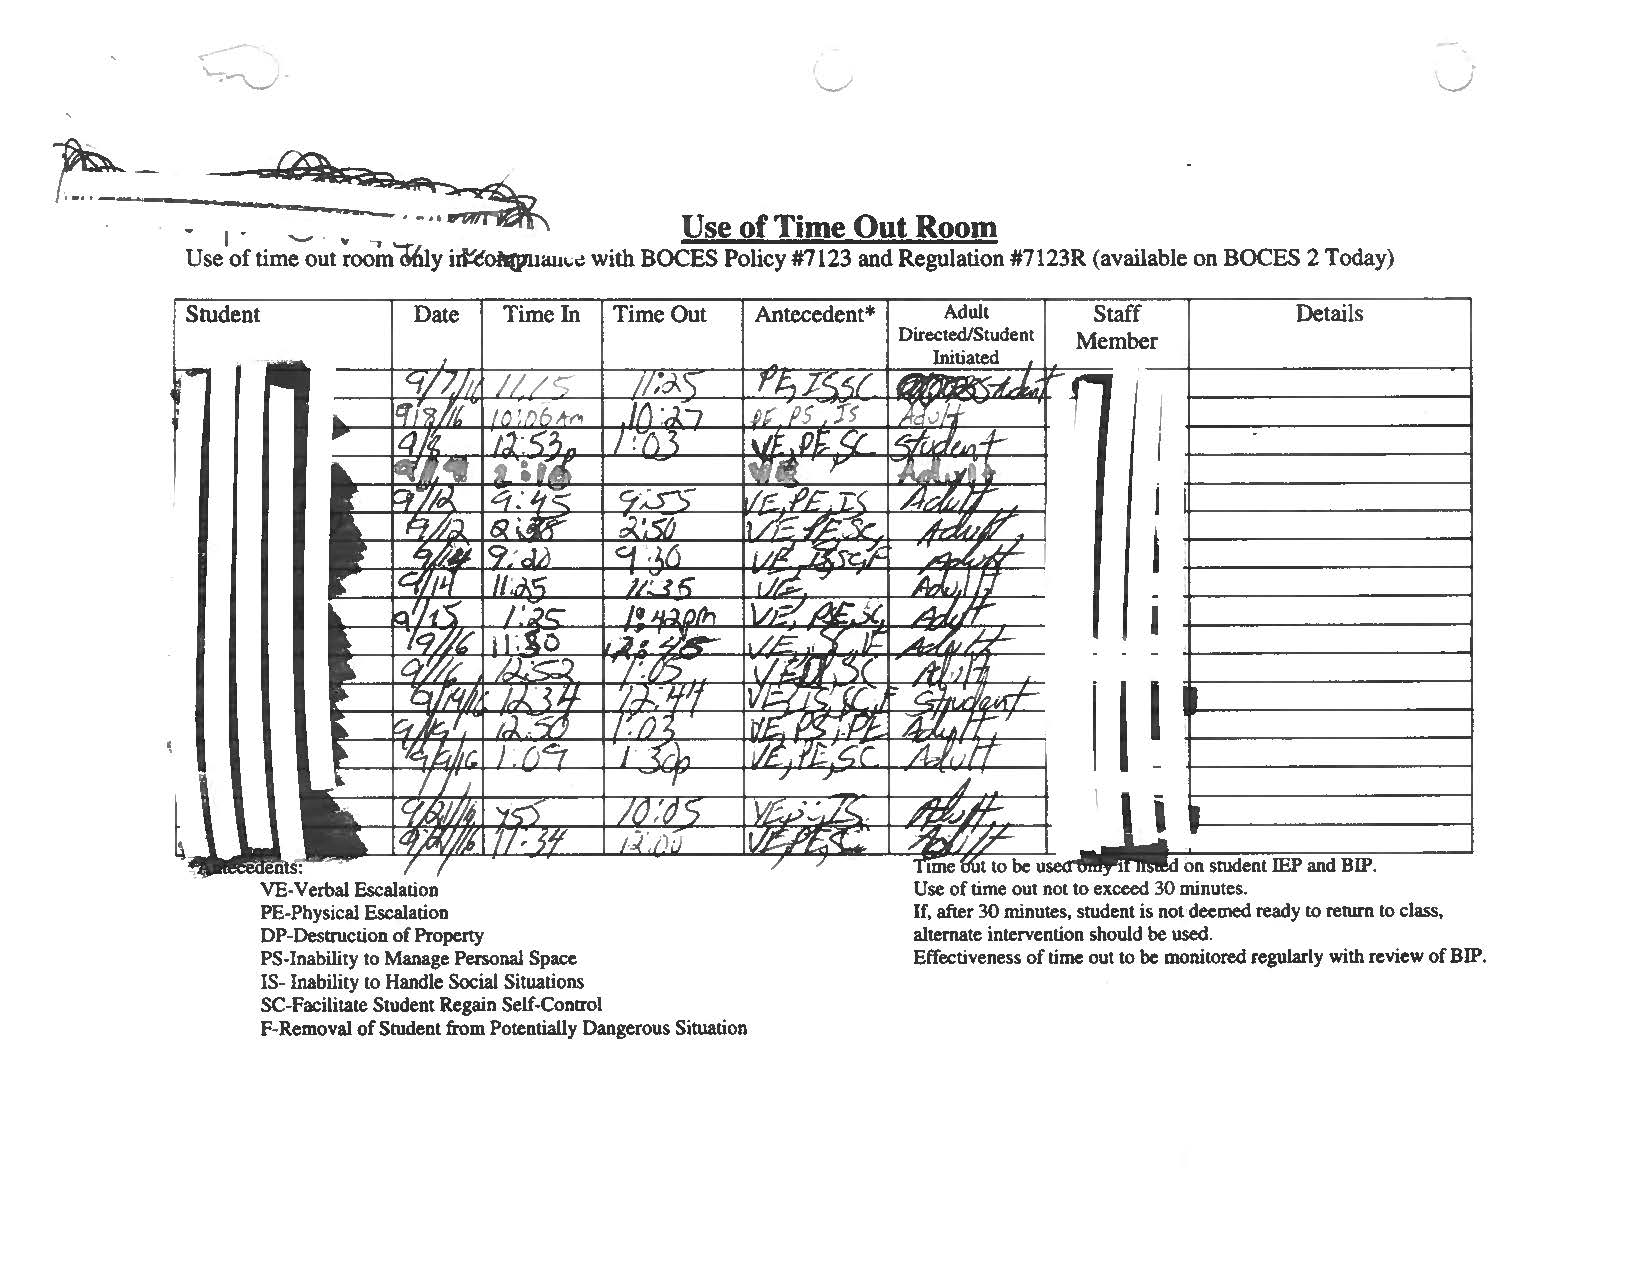 Use of Time Out Room
Use of time out room only in compliance with BOCES Policy #7123 and Regulation #7123R (available on BOCES 2 Today)
Student Date Time In Time Out Antecedent* Adult Directed/Student Initiated Staff Member Details
9/7/16 11:15 11:25 PE, IS SC Student
9/8/16 10:06 Am 10:27 PE, PS, IS Adult
9/8 12:53p 1:03 VE, PE, SC Student
9/9 2:10 VE Adult
9/12 9:45 9:55 VE, PE, IS Adult
9/12 2:50 VE, PE, SC, Adult
9/14 9:20 9:30 VE, IS, SC, F Adult
9/14 11:25 11:35 VE, Adult
9/15 1:25 1:42pm VE, PE, SC, Adult
9/16 11:50 VE, Adult
9/16 12:52 1:05 VE, SC Adult
9/19/16 12:34 12:44 VE, IS, SC, F Student
9/9/ 12:50 1:03 VE, PS, PE Adult
9/9/16 1:09 1:30p VE, PE, SC Adult
9/21/16 10:05 VE, IS Adult
9/21/16 11:34 12:00 VE, PE, SC Adult
*Antecedents:
VE-Verbal Escalation
PE-Physical Escalation
DP-Destruction of Property
PS-Inability to Manage Personal Space
IS- Inability to Handle Social Situations
SC-Facilitate Student Regain Self-Control
F-Removal of Student from Potentially Dangerous Situation
Time out to be used only if listed on student IEP and BIP.
Use of time out not to exceed 30 minutes.
If, after 30 minutes, student is not deemed ready to return to class,
alternate intervention should be used.
Effectiveness of time out to be monitored regularly with review of BIP.